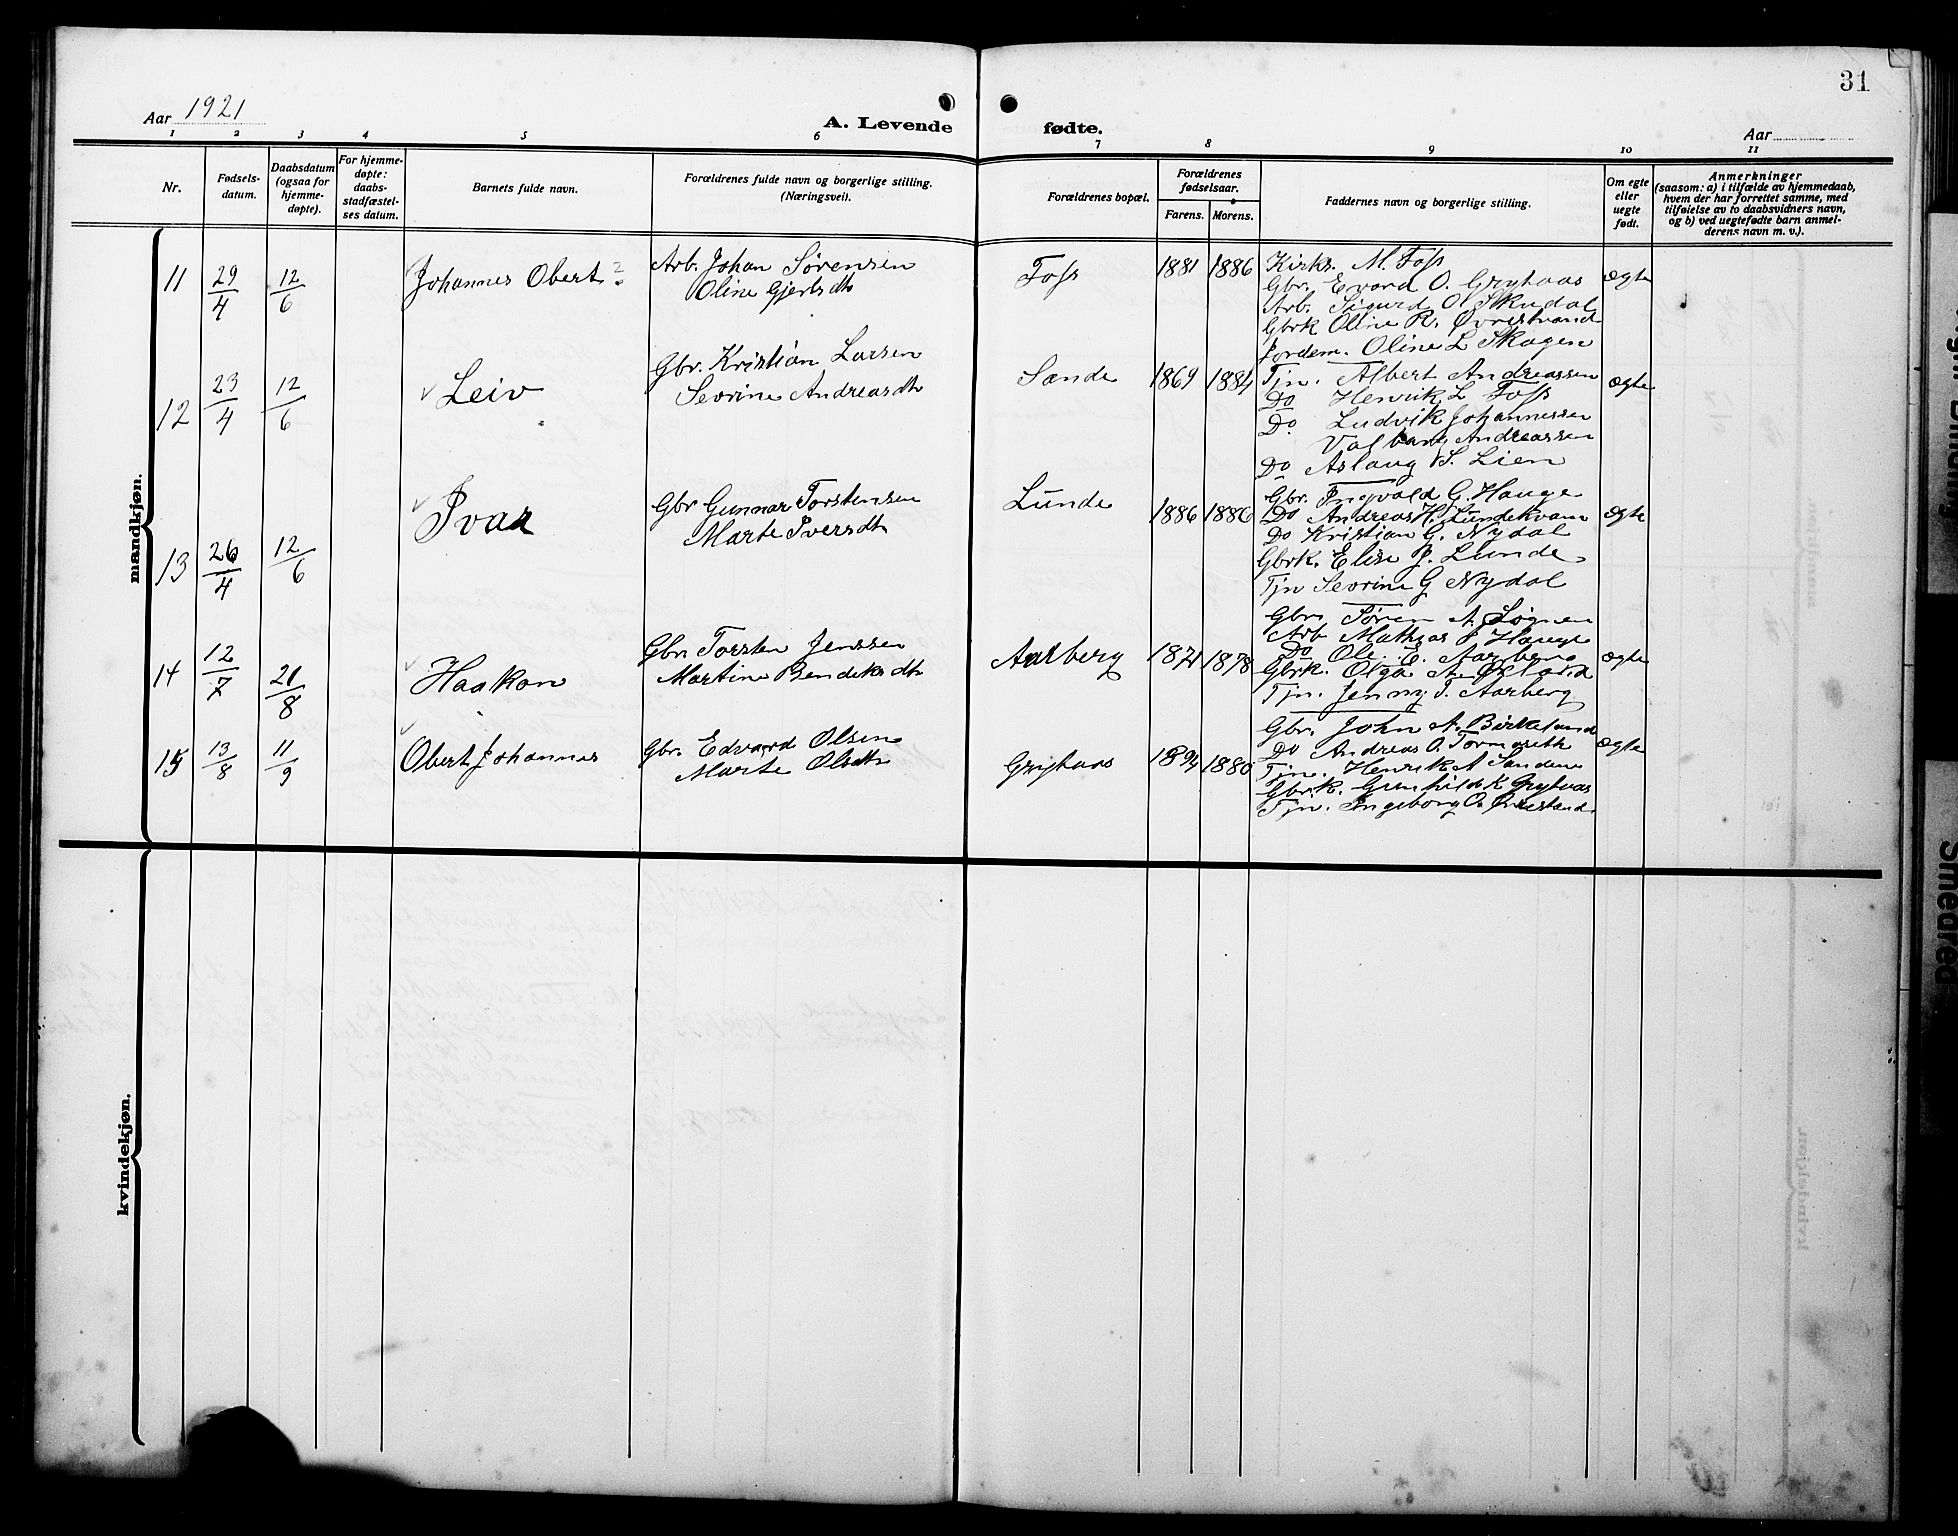 31
Aar 1921
A. Levende fødte.
Aar
1 2 3 4 5 6 7 8 9 10 11
Nr.
Fødselsdatum.
Daabsdatum (ogsaa for hjemmedøpte).
For hjemmedøpte: daabsstadfæstelses datum.
Barnets fulde navn.
Forældrenes fulde navn og borgerlige stilling. (Næringsvei).
Forældrenes bopæl.
Forældrenes fødselsaar.
Farens. Morens.
Faddernes navn og borgerlige stilling.
Om egte eller uegte født.
Anmerkninger
(saasom: a) i tilfælde av hjemmedaab, hvem der har forrettet samme, med tilføielse av to daabsvidners navn, og b) ved uegtefødte barn anmelderens navn m. v.).
mandkjøn.
11 29/4 12/6 Johannes Obert ?
Arb. Johan Sørensen
Oline Gjertsdtr
Foss 1881 1886
Kirks. M. Foss
Gbr. Evard O. Grythaas
Arb. Sigurd O. Skudal
Gbrk Oline R. Øvrestrand
Jordem. Oline L Skagen
ægte
12 23/4 12/6 Leiv
Gbr. Kristian Larsen
Sevrine Andreasdtr
Sande 1869 1884
Tjn. Albert Andreassen
Do Henrik L Foss
Do Ludvik Johannessen
Valborg Andreassen
Do Aslaug S. Lien
ægte
13 26/4 12/6 Ivar
Gbr Gunnar Torstensen
Marte Iversdtr
Lunde 1886 1886
Gbr. Ingvald G. Hauge
Do Andreas H. Lundekvam
Do Kristian G. Nydal
Gbrk. Elise J. Lunde
Tjn Sevrine G Nydal
ægte
14 12/7 21/8 Haakon
Gbr. Torsten Jenssen
Martine Bendiksdtr
Aarberg 1878
Gbr. Søren A. Løgnen
Arb Mathias J. Hauge
Do Ole E. Aarberg
Gbrk. Olga A.
Tjn. Jenny T. Aarberg
ægte
15 13/8 11/9 Obert Johannes
Gbr. Edvard Olsen
Marte Olsdtr
Grythaas 1880
Gbr. John A. Birkeland
Do Andreas O.
Tjn. Henrik A Sandene
Gbrk. Gunhild K Grythaas
Tjn. Ingeborg O. Øvrestrand
ægte
kvindekjøn.